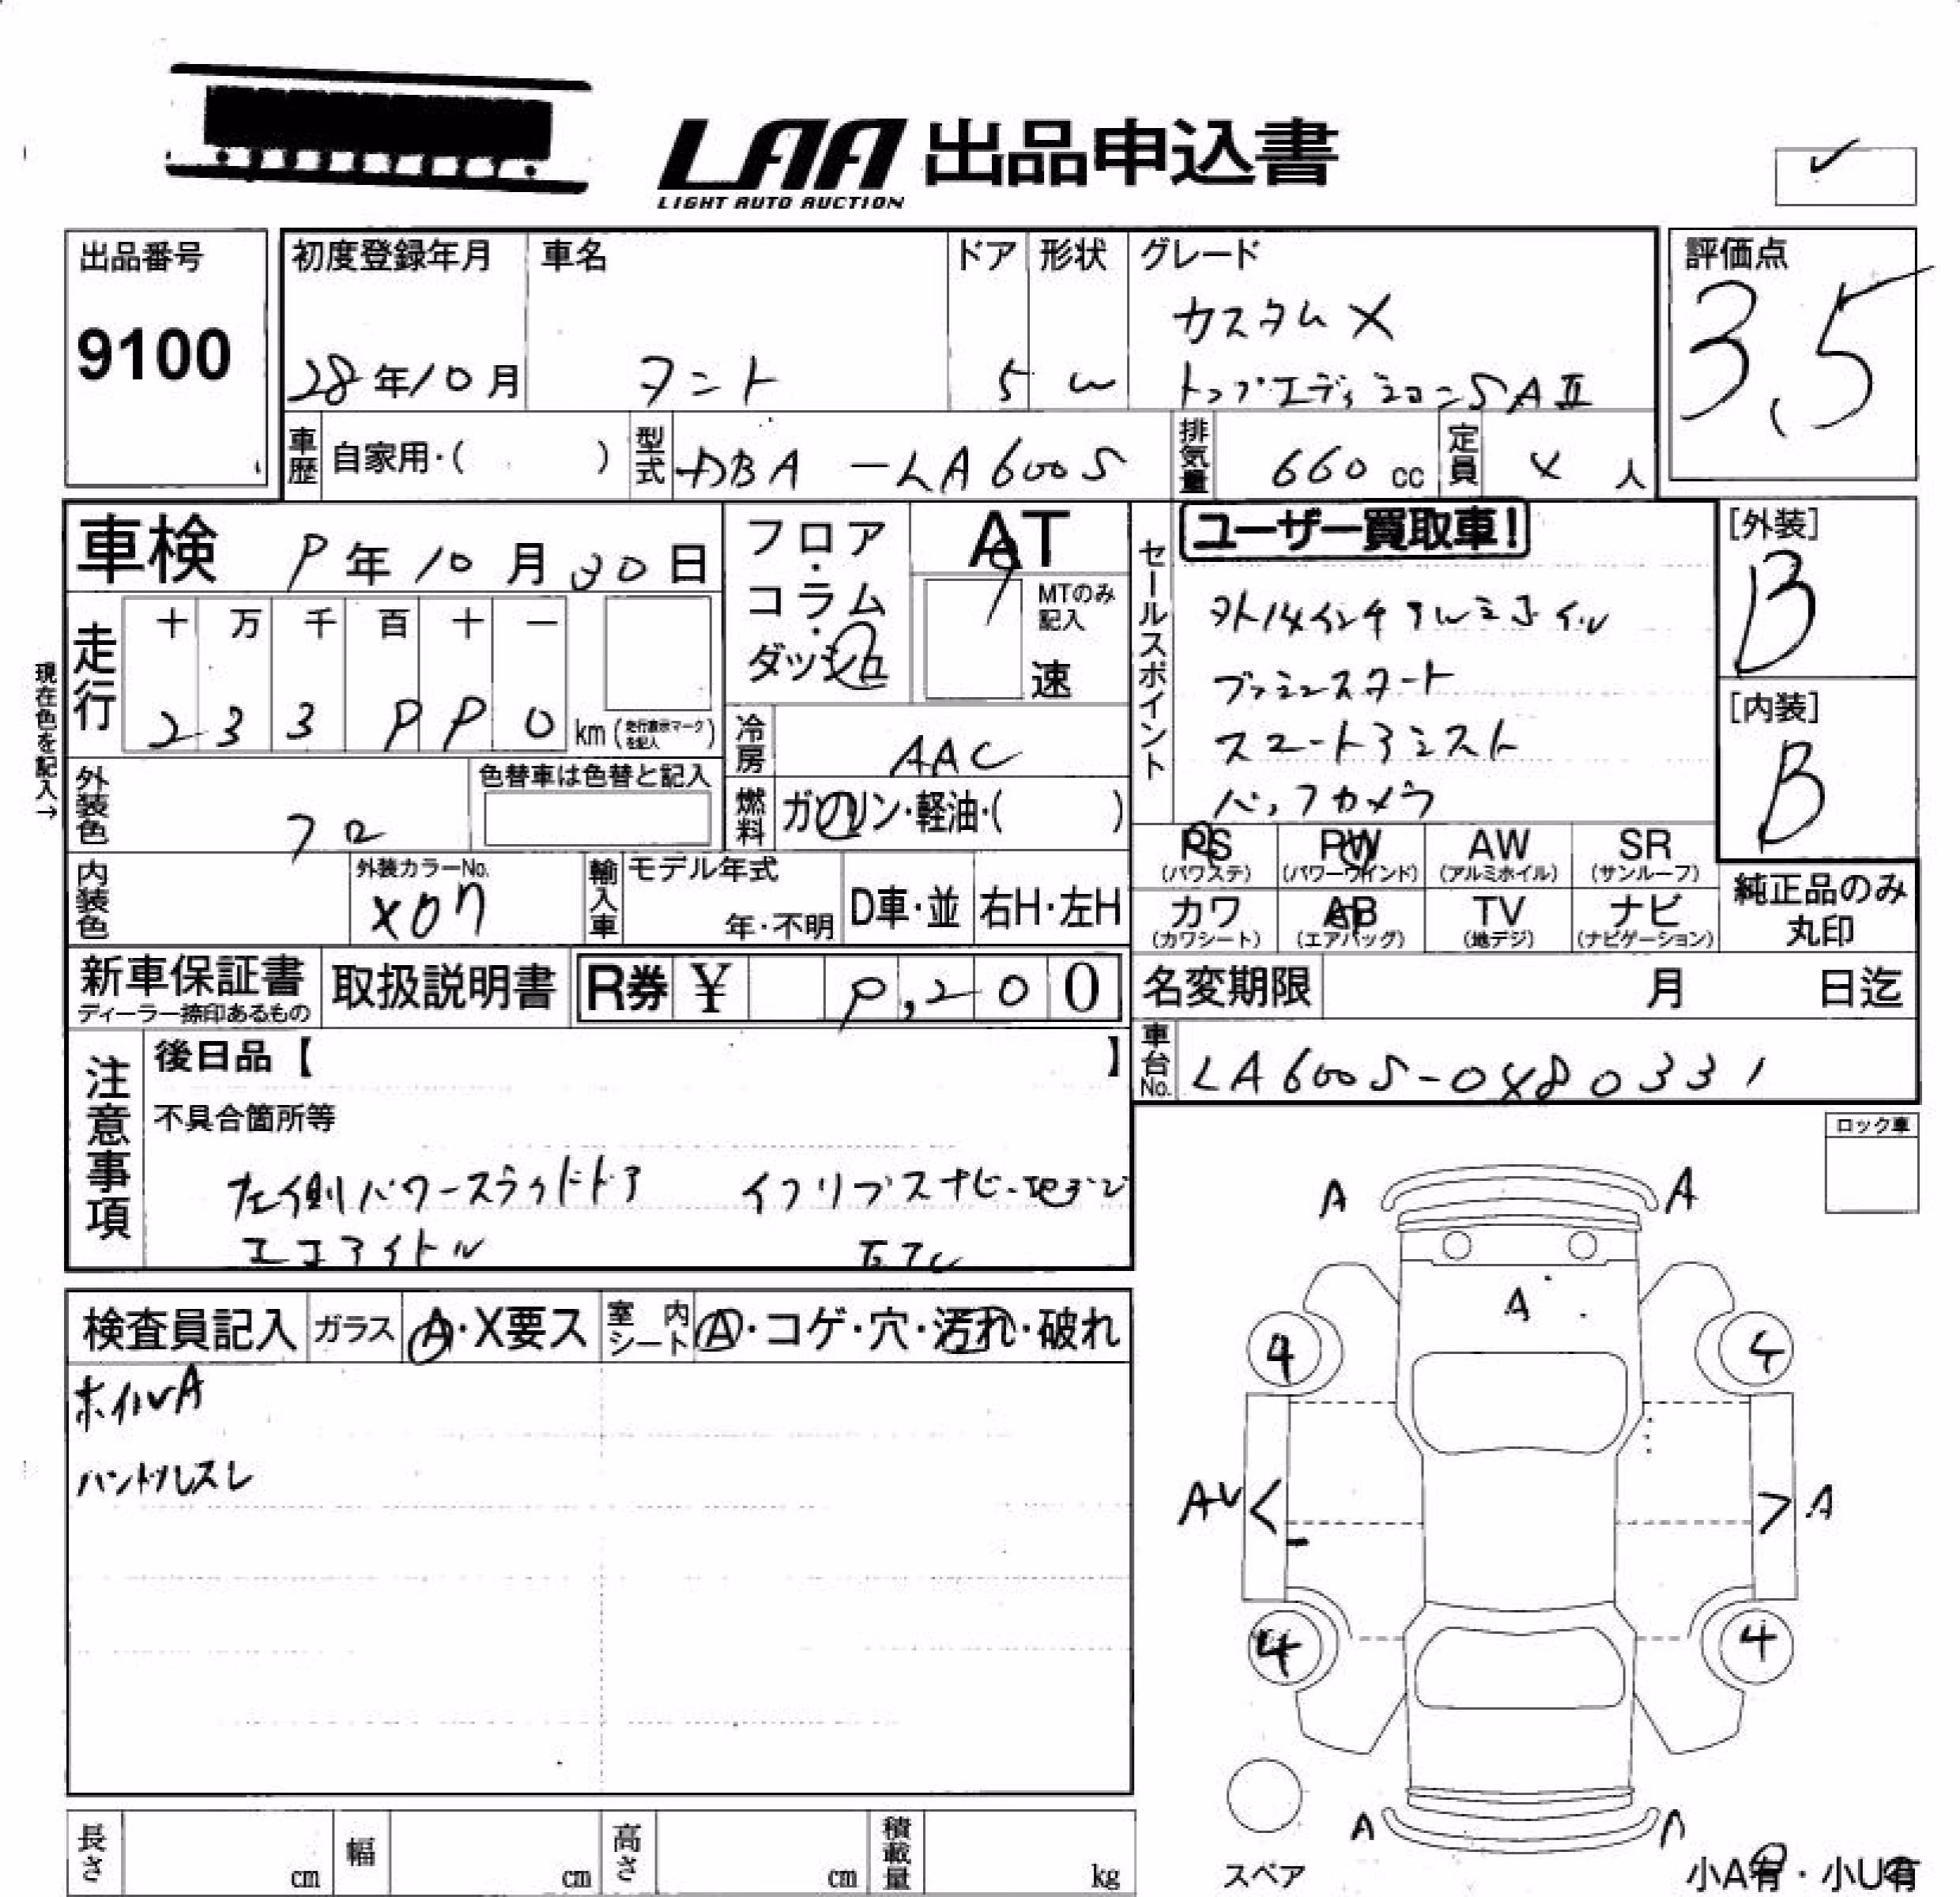 LAA 出品申込書
LIGHT AUTO AUCTION
出品番号
9100
初度登録年月
28年10月
車名
タント
ドア
5
形状
W
グレード
カスタムX
トップエディションSAⅡ
評価点
3.5
車歴
自家用・( )
型式
DBA-LA600S
排気量
660cc
定員
4人
車検
9年10月30日
フロア・コラム・ダッシュ
AT
MTのみ記入
速
走行
十 万 千 百 十 一
2 3 3 9 9 0 km (走行表示マークを記入)
現在色を記入→
冷房
AAC
外装色
クロ
色替車は色替と記入
燃料
ガソリン・軽油・( )
内装色
外装カラーNo.
X07
輸入車
モデル年式
年・不明
D車・並
右H・左H
新車保証書
ディーラー捺印あるもの
取扱説明書
R券 ¥ 9,200
セールスポイント
ユーザー買取車!
14インチアルミホイル
プッシュスタート
スマートアシスト
バックカメラ
[外装]
B
[内装]
B
PS (パワステ)
PW (パワーウインド)
AW (アルミホイル)
SR (サンルーフ)
カワ (カワシート)
AB (エアバッグ)
TV (地デジ)
ナビ (ナビゲーション)
純正品のみ丸印
名変期限 月 日迄
車台No.
LA600S-0480331
注意事項
後日品【 】
不具合箇所等
左側パワースライドドア イクリプスナビ・地デジ
エコアイドル ETC
ロック車
検査員記入
ガラス
A・X要ス
室内シート
A・コゲ・穴・汚れ・破れ
ホイルA
ハンドルスレ
A A
A
4 4
AU< >A
4 4
A A
スペア
小A有・小U有
長さ cm
幅 cm
高さ cm
積載量 kg